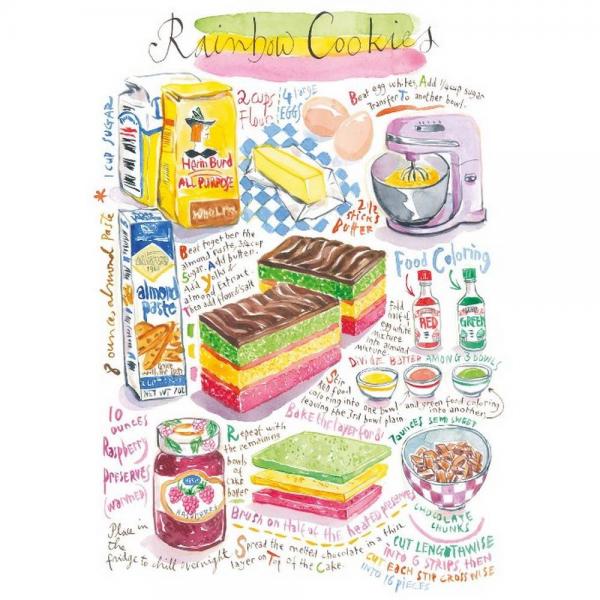 Rainbow Cookies
1 CUP SUGAR
2 cups
Flour
4 large
EGGS
Beat egg whites, Add 1/4 cup sugar
Transfer To another bowl.
Herm Burd
ALL PURPOSE
2 1/2
sticks
Butter
8 ounces almond paste *
Beat together the
almond paste, 3/4 cup
Sugar. Add butter.
Add Yolks &
almond Extract
Then add flour & Salt
almond
paste
NET WT 7OZ
Food Coloring
RED
GREEN
Fold
half of
egg white
mixture
into almond
mixture.
DIVIDE BATTER AMONG 3 BOWLS
Stir
red Food
coloring into one bowl and green food coloring
leaving the 3rd bowl plain into another
Bake the layer for 8
7 ounces SEMI SWEET
CHOCOLATE
CHUNKS
10
OUNCES
Raspberry
PRESERVES
(warmed)
Repeat with
the remaining
bowls
of
cake
batter
Brush on Half of the heated preserves
Spread the melted chocolate in a thin
layer on Top of the Cake.
Place in
the
fridge to chill overnight
CUT LENGTHWISE
INTO 6 STRIPS, THEN
CUT EACH STIP CROSSWISE
INTO 16 PIECES